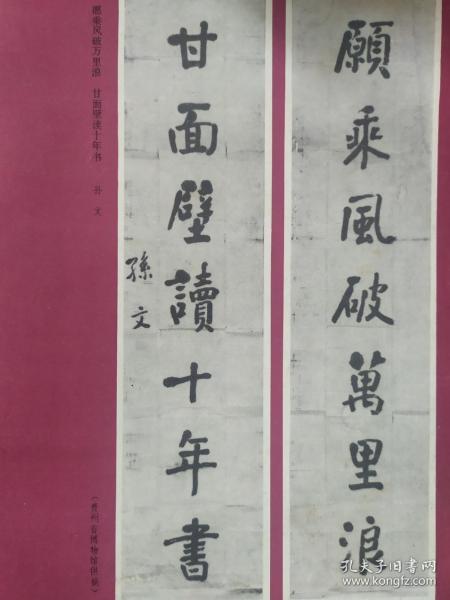 願乘風破萬里浪
甘面壁讀十年書
孫文
愿乘风破万里浪 甘面壁读十年书 孙文
（贵州省博物馆供稿）
孔夫子旧书网